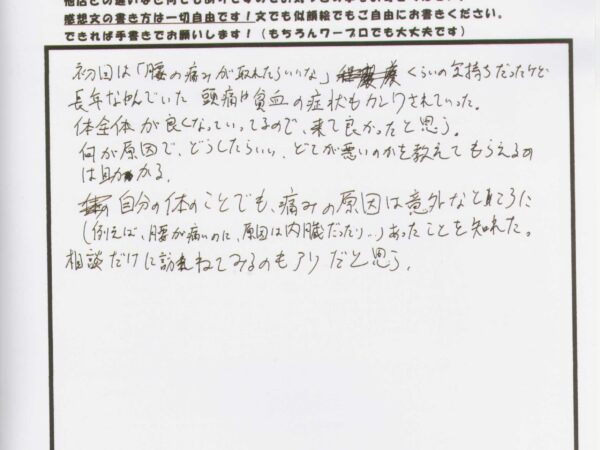 感想文の書き方は一切自由です！文でも似顔絵でもご自由にお書きください。
できれば手書きでお願いします！（もちろんワープロでも大丈夫です）
初回は「腰の痛みが取れたらいいな」くらいの気持ちだったけど
長年なやんでいた 頭痛や貧血の症状もカイゼンされていった。
体全体が良くなっていってるので、来て良かったと思う。
何が原因で、どうしたらいい、どこが悪いのかを教えてもらえるの
は助かる。
自分の体のことでも、痛みの原因は意外なところに
（例えば、腰が痛いのに、原因は内臓だったり…）あったことを知れた。
相談だけに訪ねてみるのもアリだと思う。